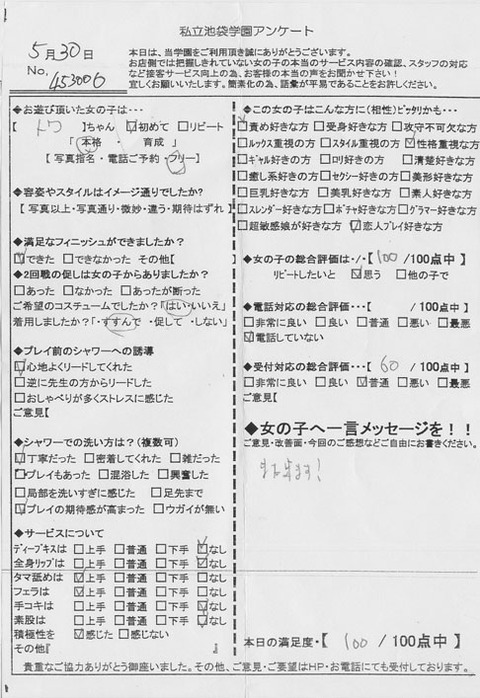 私立池袋学園アンケート
5月30日
No. 453006
本日は、当学園をご利用頂き誠にありがとうございます。
お店側では把握しきれていない女の子の本当のサービス内容の確認、スタッフの対応
など接客サービス向上の為、お客様の本当の声をお聞かせ下さい!
宜しくお願いいたします。簡業化の為、語彙が平易であることをお許しください。
◆お遊び頂いた女の子は・・・
【 トワ 】ちゃん ☑初めて □リピート
「 本格 ・ 育成 」
【 写真指名・電話ご予約・フリー】
◆容姿やスタイルはイメージ通りでしたか?
【 写真以上・写真通り・微妙・違う・期待はずれ 】
◆満足なフィニッシュができましたか?
☑できた □できなかった その他【
◆2回戦の促しは女の子からありましたか?
□あった □なかった □あったが断った
ご希望のコスチュームでしたか?「はい・いいえ」
着用しましたか?「・すすんで ・促して ・しない」
◆プレイ前のシャワーへの誘導
☑心地よくリードしてくれた
□逆に先生の方からリードした
□おしゃべりが多くストレスに感じた
ご意見【
◆シャワーでの洗い方は?(複数可)
☑丁寧だった □密着してくれた □雑だった
☑プレイもあった □混浴した □興奮した
□局部を洗いすぎに感じた □足先まで
☑プレイの期待感が高まった □ウガイが無い
◆サービスについて
ディープキスは □上手 □普通 □下手 ☑なし
全身リップは □上手 □普通 □下手 ☑なし
タマ舐めは ☑上手 □普通 □下手 □なし
フェラは ☑上手 □普通 □下手 □なし
手コキは □上手 □普通 □下手 ☑なし
素股は □上手 □普通 □下手 ☑なし
積極性を ☑感じた □感じない
その他『 』
◆この女の子はこんな方に(相性)ピッタリかも・・
☑責め好きな方 □受身好きな方 □攻守不可欠な方
□ルックス重視の方 □スタイル重視の方 ☑性格重視な方
□ギャル好きの方 □ロリ好きの方 □清楚好きな方
□癒し系好きの方 □セクシー好きの方 □美形好きな方
□巨乳好きな方 □美乳好きな方 □素人好きな方
□スレンダー好きな方 □ポチャ好きな方 □グラマー好きな方
□超敏感娘が好きな方 ☑恋人プレイ好きな方
◆女の子の総合評価は・/・【 100 /100点中】
リピートしたいと ☑思う □他の子で
◆電話対応の総合評価・・・【 /100点中】
□非常に良い □良い □普通 □悪い □最悪
☑電話していない
◆受付対応の総合評価・・・【 60 /100点中】
□非常に良い □良い ☑普通 □悪い □最悪
ご意見【
◆女の子へ一言メッセージを!!
ご意見・改善面・今回のご感想などご自由にお書きください。
また来ます!
本日の満足度・【 100 /100点中】
貴重なご協力ありがとう御座いました。その他、ご意見・ご要望はHP・お電話にても受付しております。